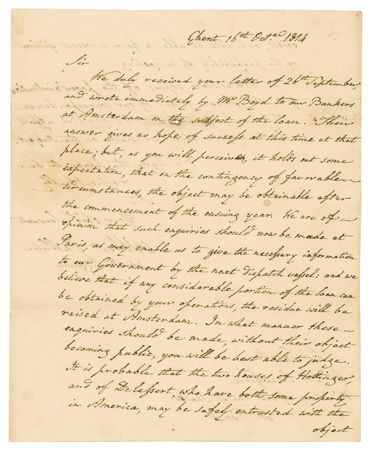 Ghent 16th Oct.er 1814
Sir
We duly received your letter of 26th September
and wrote immediately by Mr Boyd to our Bankers
at Amsterdam on the subject of the loan. Their
answer gives no hope of success at this time at that
place; but, as you will perceive, it holds out some
expectation, that on the contingency of favorable
circumstances, the object may be obtainable after
the commencement of the ensuing year. We are of
opinion that such enquiries should now be made at
Paris, as may enable us to give the necessary information
to our Government by the next dispatch vessel: and we
believe that if any considerable portion of the loan can
be obtained by your operations, the residue will be
raised at Amsterdam. In what manner these
enquiries should be made, without their object
becoming public, you will be best able to judge.
It is probable that the two houses of Hottinger
and of Delessert who have both some property
in America, may be safely entrusted with the
object